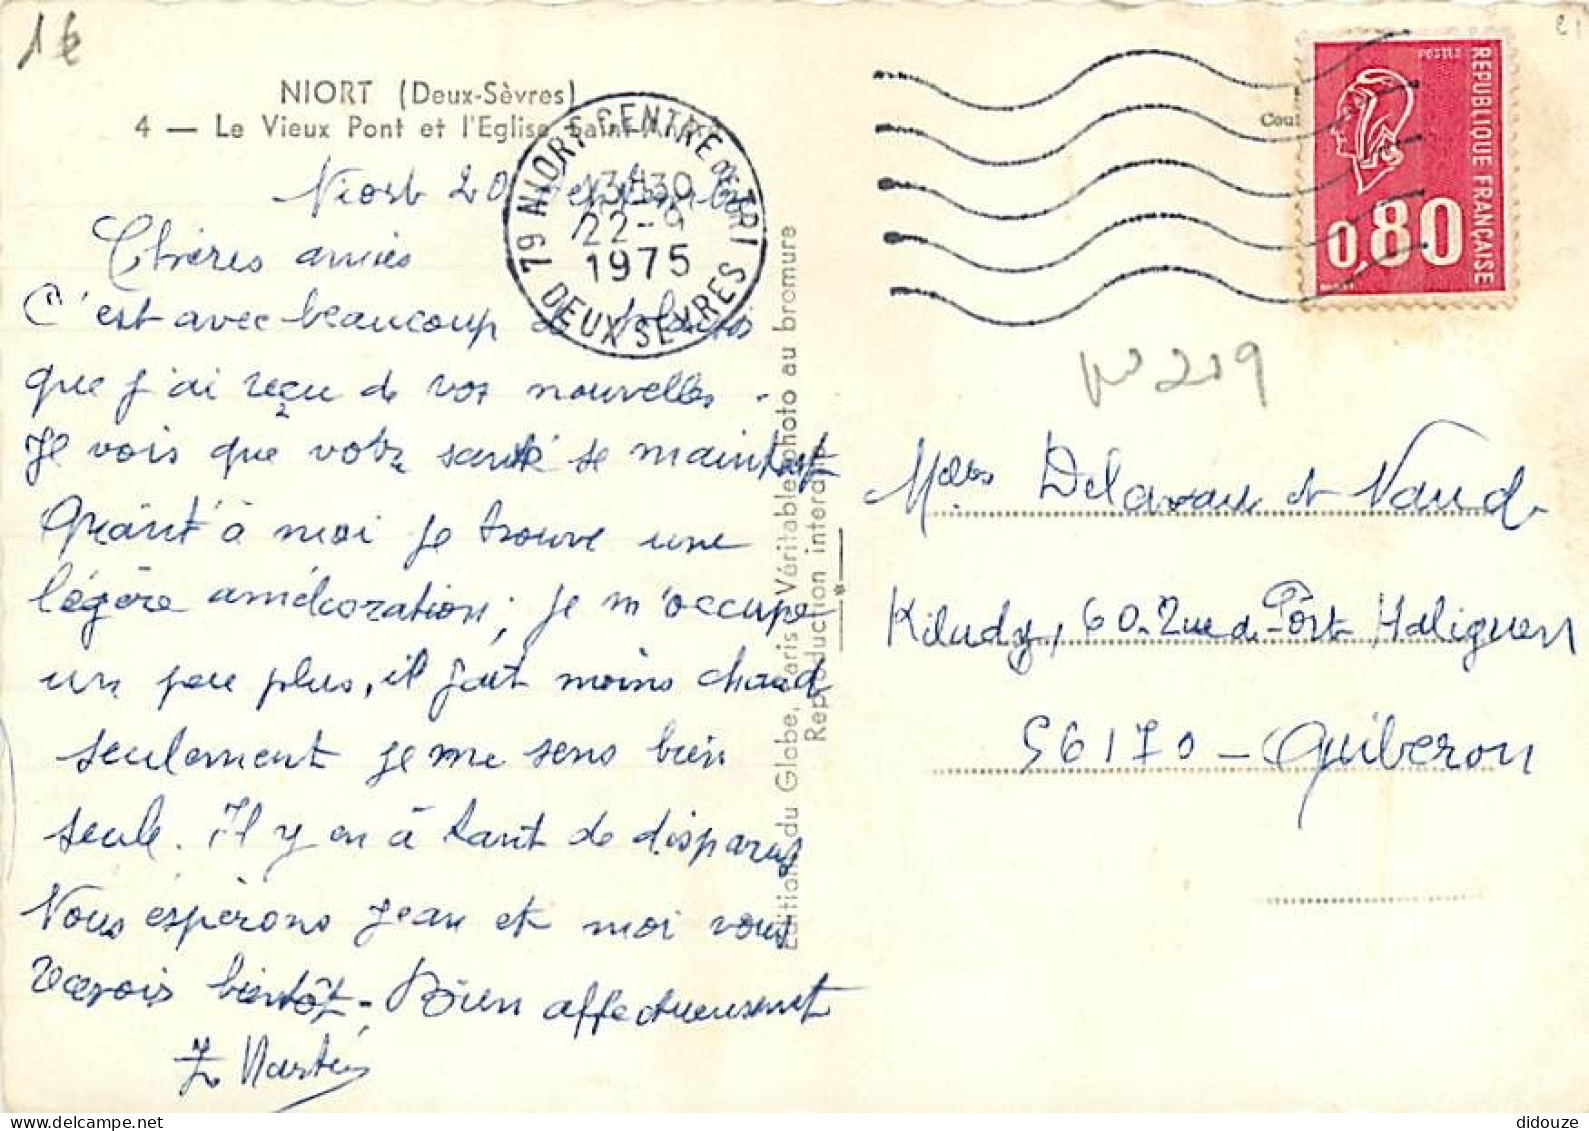 1€
NIORT (Deux-Sèvres)
4 — Le Vieux Pont et l'Eglise Saint-André
Niort 20 Septembre
Chères amies
C'est avec beaucoup de plaisir
que j'ai reçu de vos nouvelles.
Je vois que votre santé se maintient
Quant à moi je trouve une
légère amélioration; je m'occupe
un peu plus, il fait moins chaud
seulement je me sens bien
seule. Il y en à tant de disparus
Nous espèrons Jean et moi vous
revoir bientôt - Bien affectueusement
Martin
79 NIORT CENTRE DE TRI
13H30
22-9
1975
DEUX SEVRES
Editions du Globe, Paris Véritable photo au bromure
Reproduction interdite
POSTES
REPUBLIQUE FRANÇAISE
0,80
Coul
N° 209
Melles Delavau et Naud
60 Rue de Port Haliguen
56170 - Quiberon
didouze